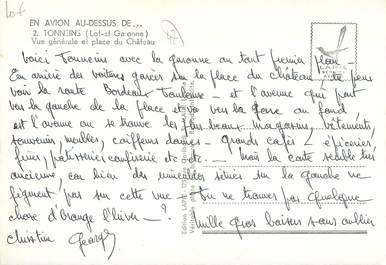 Lot
EN AVION AU-DESSUS DE...
2. TONNEINS (Lot-et-Garonne)
Vue générale et place du Château
LAPIE
Voici Tonneins avec la garonne au tout premier plan -
En arrière des voitures garées sur la place du château - tu peux
voir la route Bordeaux Toulouse - et l'avenue qui part
vers la gauche de la place et va vers la gare au fond
est l'avenue où se trouve les plus beaux magasins, vêtements,
souvenirs, meubles, coiffeurs dames - grands cafés épiceries
fruits, patisserie confiserie etc etc - mais la carte semble très
ancienne, car bien des immeubles situés sur la gauche ne
figurent pas sur cette vue - Tu ne trouves pas quelque
chose d'étrange l'hiver - ?
Mille gros baisers sans oublier
Christian Georges
Editions LAPIE
Véritable photo